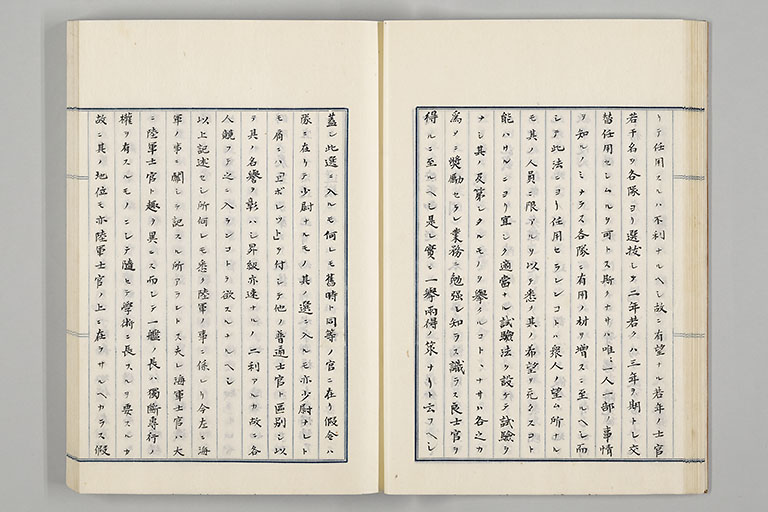 リテ任用スルハ不利ナルヘシ故ニ有望ナル若年ノ士官
若干名ヲ各隊ヨリ選拔シテ二年若クハ三年ヲ期トシ交
替任用セシムルヲ可トス斯クナサハ唯ニ一人一部ノ事情
ヲ知ルノミナラス各隊ニ有用ノ材ヲ增スニ至ルヘシ而
シテ此法ニヨリ任用セラレンコトハ衆人ノ望ム所ナル
モ其ノ人員ニ限アルヲ以テ悉ク其ノ希望ヲ充クスコト
能ハサルニヨリ宜シク適當ナル試驗法ヲ設ケテ試驗ヲ
ナシ其ノ及第シタルモノヲ擧クルコトヽナサハ各之カ
爲メニ獎勵セラレ業務ニ勉强シ知ラス識ラス良士官ヲ
得ルニ至ルヘシ是レ實ニ一擧兩得ノ策ナリト云フヘシ
蓋シ此選ニ入ルモ何レモ舊時ト同等ノ官ニ在リ假令ハ
隊ニ在リテ少尉ナルモノ其ノ選ニ入ルモ亦少尉ナレト
モ肩ニハ
ヲ付シテ他ノ普通士官ト區別シ以
テ其ノ名譽ヲ彰ハシ昇級亦速ナルノ二利アルカ故ニ各
人競フテ之ニ入ランコトヲ欲スルナルヘシ
以上記述セシ所何レモ悉ク陸軍ノ事ニ係レリ今左ニ海
軍ノ事ニ關シテ記スル所アラントス夫レ海軍士官ハ大
ニ陸軍士官ト趣ヲ異ニス而シテ一艦ノ長ハ獨斷專行ノ
權ヲ有スルモノニシテ隨テ學術ニ長スルヲ要スルカ
故ニ其ノ地位モ亦陸軍士官ノ上ニ在ラサルヘカラス假